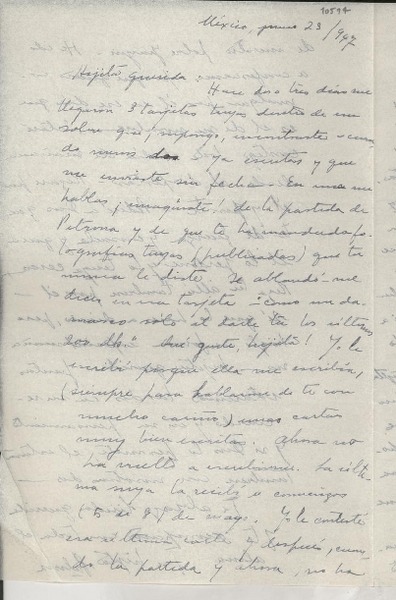 10594
México, junio 23/947
Hijita querida
Hace dos o tres días me
llegaron 3 tarjetas tuyas dentro de un
sobre que, supongo, encontraste
ya escritas y que
me enviaste sin fecha. En una me
hablas, ¡imagínate! de la partida de
Petrona y de que te ha mandado fo-
tografías tuyas (publicadas) que tú
nunca le diste. Se ablandó - me
dices en una tarjeta - "como un da-
masco solo al darle tú los últimos
200 dls." Qué gente, hijita! Yo le
escribí porque ella me escribía,
(siempre para hablarme de ti con
mucho cariño) unas cartas
muy bien escritas. Ahora no
ha vuelto a escribirme. La últi-
ma suya la recibí a comienzos
de mayo. Yo le contesté
esa última carta y después, cuan-
do la partida y ahora, no ha